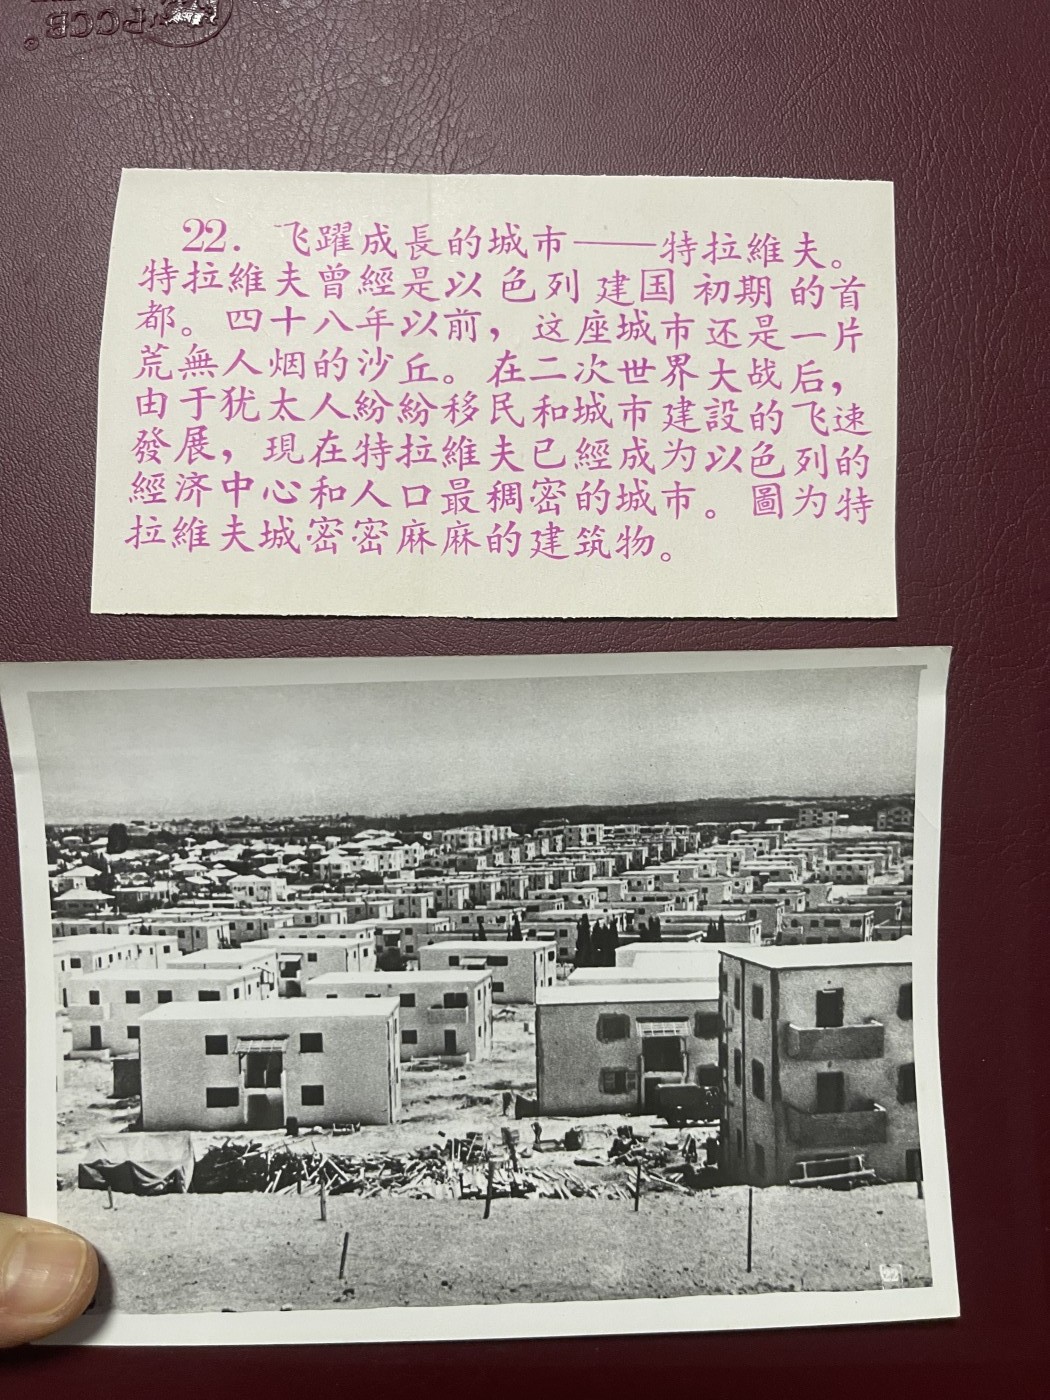 PCCB
22. 飞躍成長的城市——特拉維夫。
特拉維夫曾經是以色列建国初期的首
都。四十八年以前，这座城市还是一片
荒無人烟的沙丘。在二次世界大战后，
由于犹太人紛紛移民和城市建設的飞速
發展，現在特拉維夫已經成为以色列的
經济中心和人口最稠密的城市。圖为特
拉維夫城密密麻麻的建筑物。